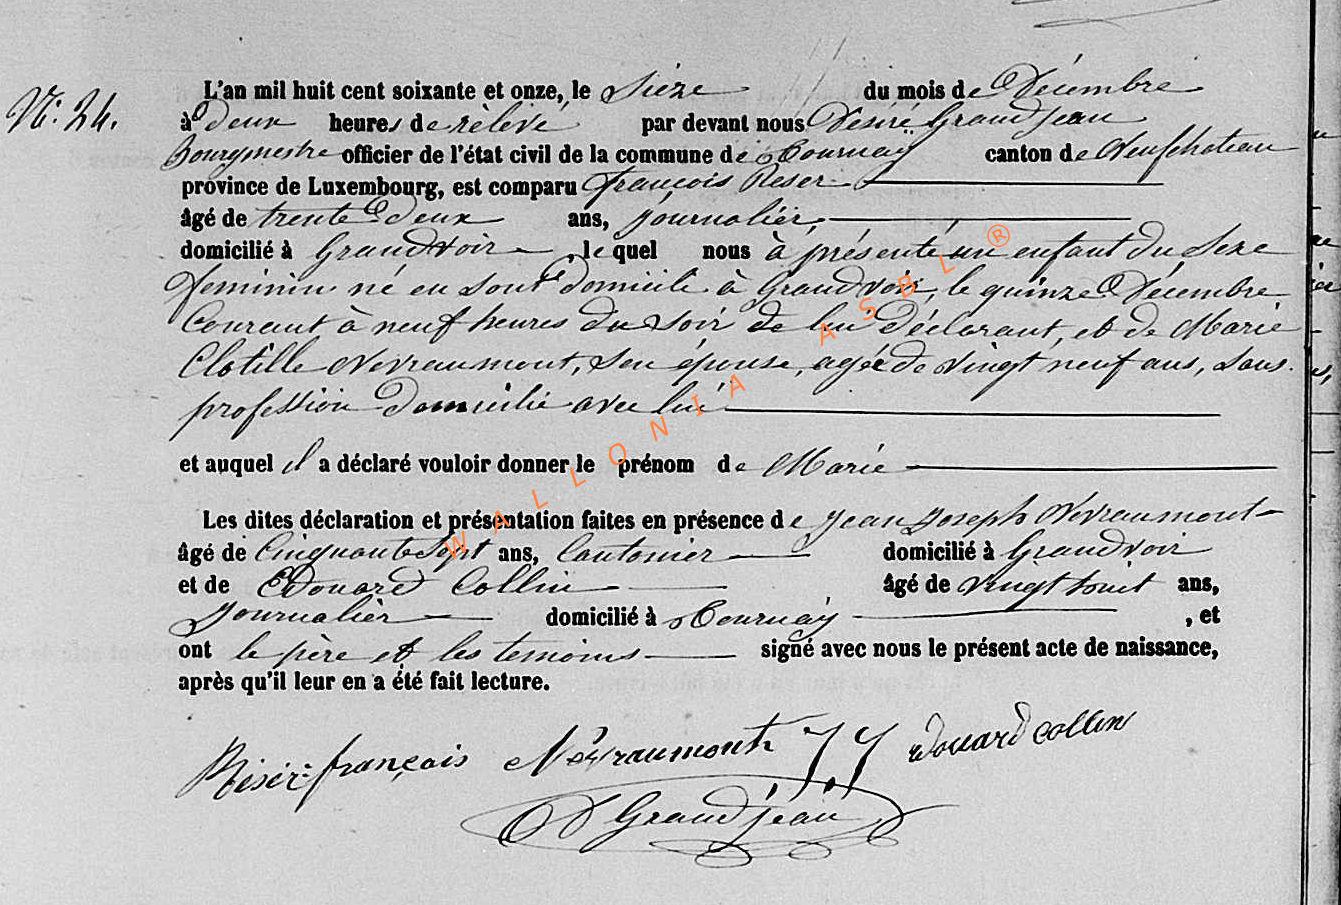 N: 24.
L'an mil huit cent soixante et onze, le sieze du mois de Décembre
à deux heures de rèlevé par devant nous Désiré Grandjean
Bourgmestre officier de l'état civil de la commune de Tournay canton de Neufchateau
province de Luxembourg, est comparu François Reser
âgé de trente deux ans, journalièr,
domicilié à Grandvoir, le quel nous à présenté un enfant du sexe
féminin né en sont domicile à Grandvoir, le quinze Décembre
Courant à neuf heures du soir de lui Déclarant, et de Marie
Clotille Nevraumont, son épouse, agée de vingt neuf ans, sans
profession Domicilié avec lui
et auquel il a déclaré vouloir donner le prénom de Marie
Les dites déclaration et présentation faites en présence de Jean Joseph Nevraumont
âgé de Cinquante Sept ans, Cantonier domicilié à Grandvoir
et de Edouard Collin âgé de vingt huit ans,
Journalièr domicilié à Tournay , et
ont le père et les temoins signé avec nous le présent acte de naissance,
après qu'il leur en a été fait lecture.
Résèr françois Névraumont J J edouard collin
D Grandjean
WALLONIA ASBL ®